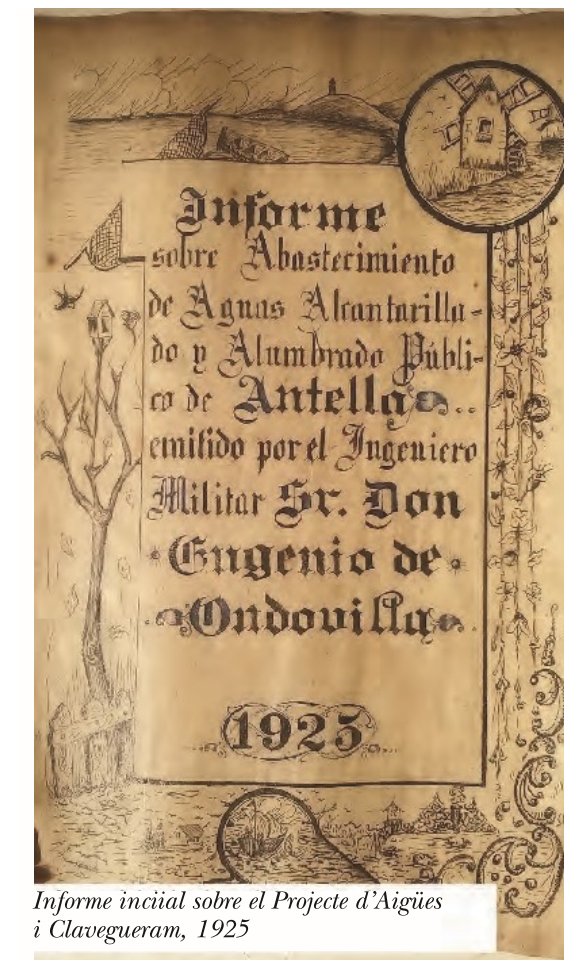 Informe
sobre Abastecimiento
de Aguas Alcantarilla-
do y Alumbrado Públi-
co de Antella
emitido por el Ingeniero
Militar Sr. Don
Eugenio de
Ondovilla
1925
Informe inciial sobre el Projecte d'Aigües
i Clavegueram, 1925